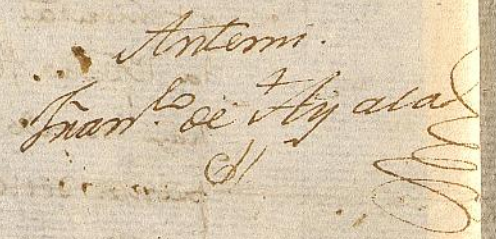 Antemi.
Juan Ph.co de Ayala